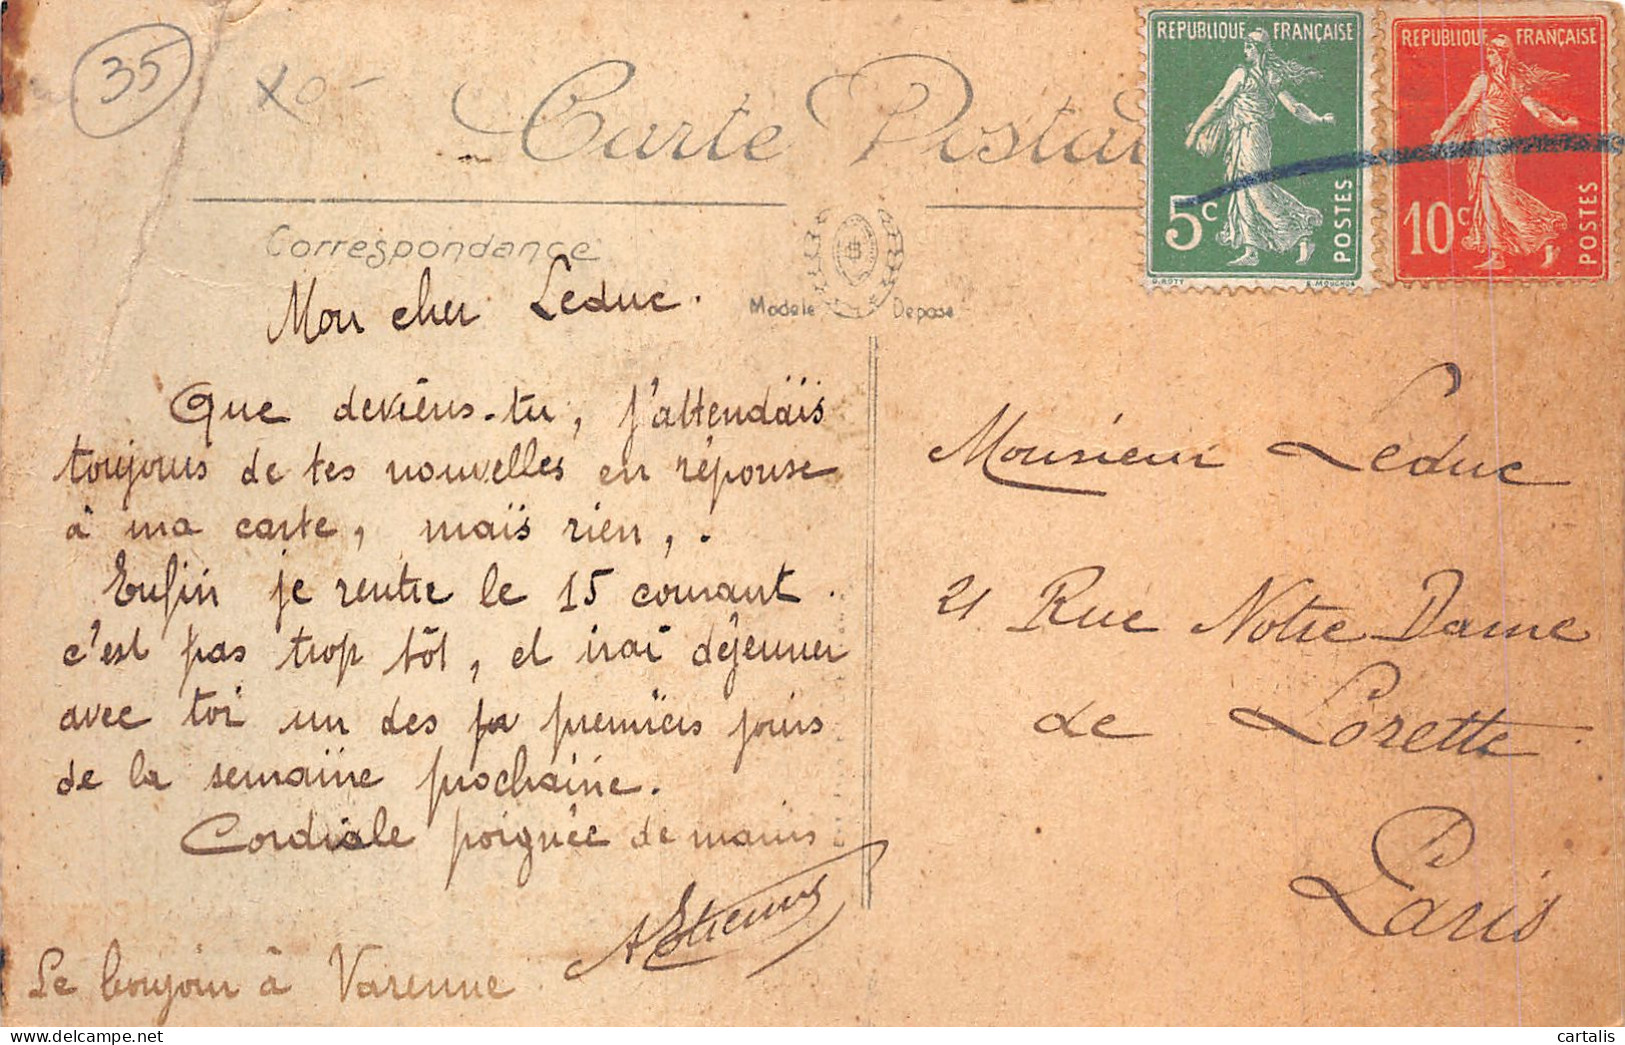 35
REPUBLIQUE FRANÇAISE
5c
POSTES
O. ROTY E. MOUCHON
REPUBLIQUE FRANÇAISE
10c
POSTES
Carte Postale
Correspondance
Modele Depose
Mon cher Leduc.
Que deviens-tu, j'attendais
toujours de tes nouvelles en réponse
à ma carte, mais rien, .
Enfin je rentre le 15 courant.
c'est pas trop tôt, et irai déjeuner
avec toi un des premiers jours
de la semaine prochaine.
Cordiale poignée de mains
AEtienne
Le boujour à Varenne
Monsieur Leduc
21 Rue Notre Dame
de Lorette
Paris
cartalis